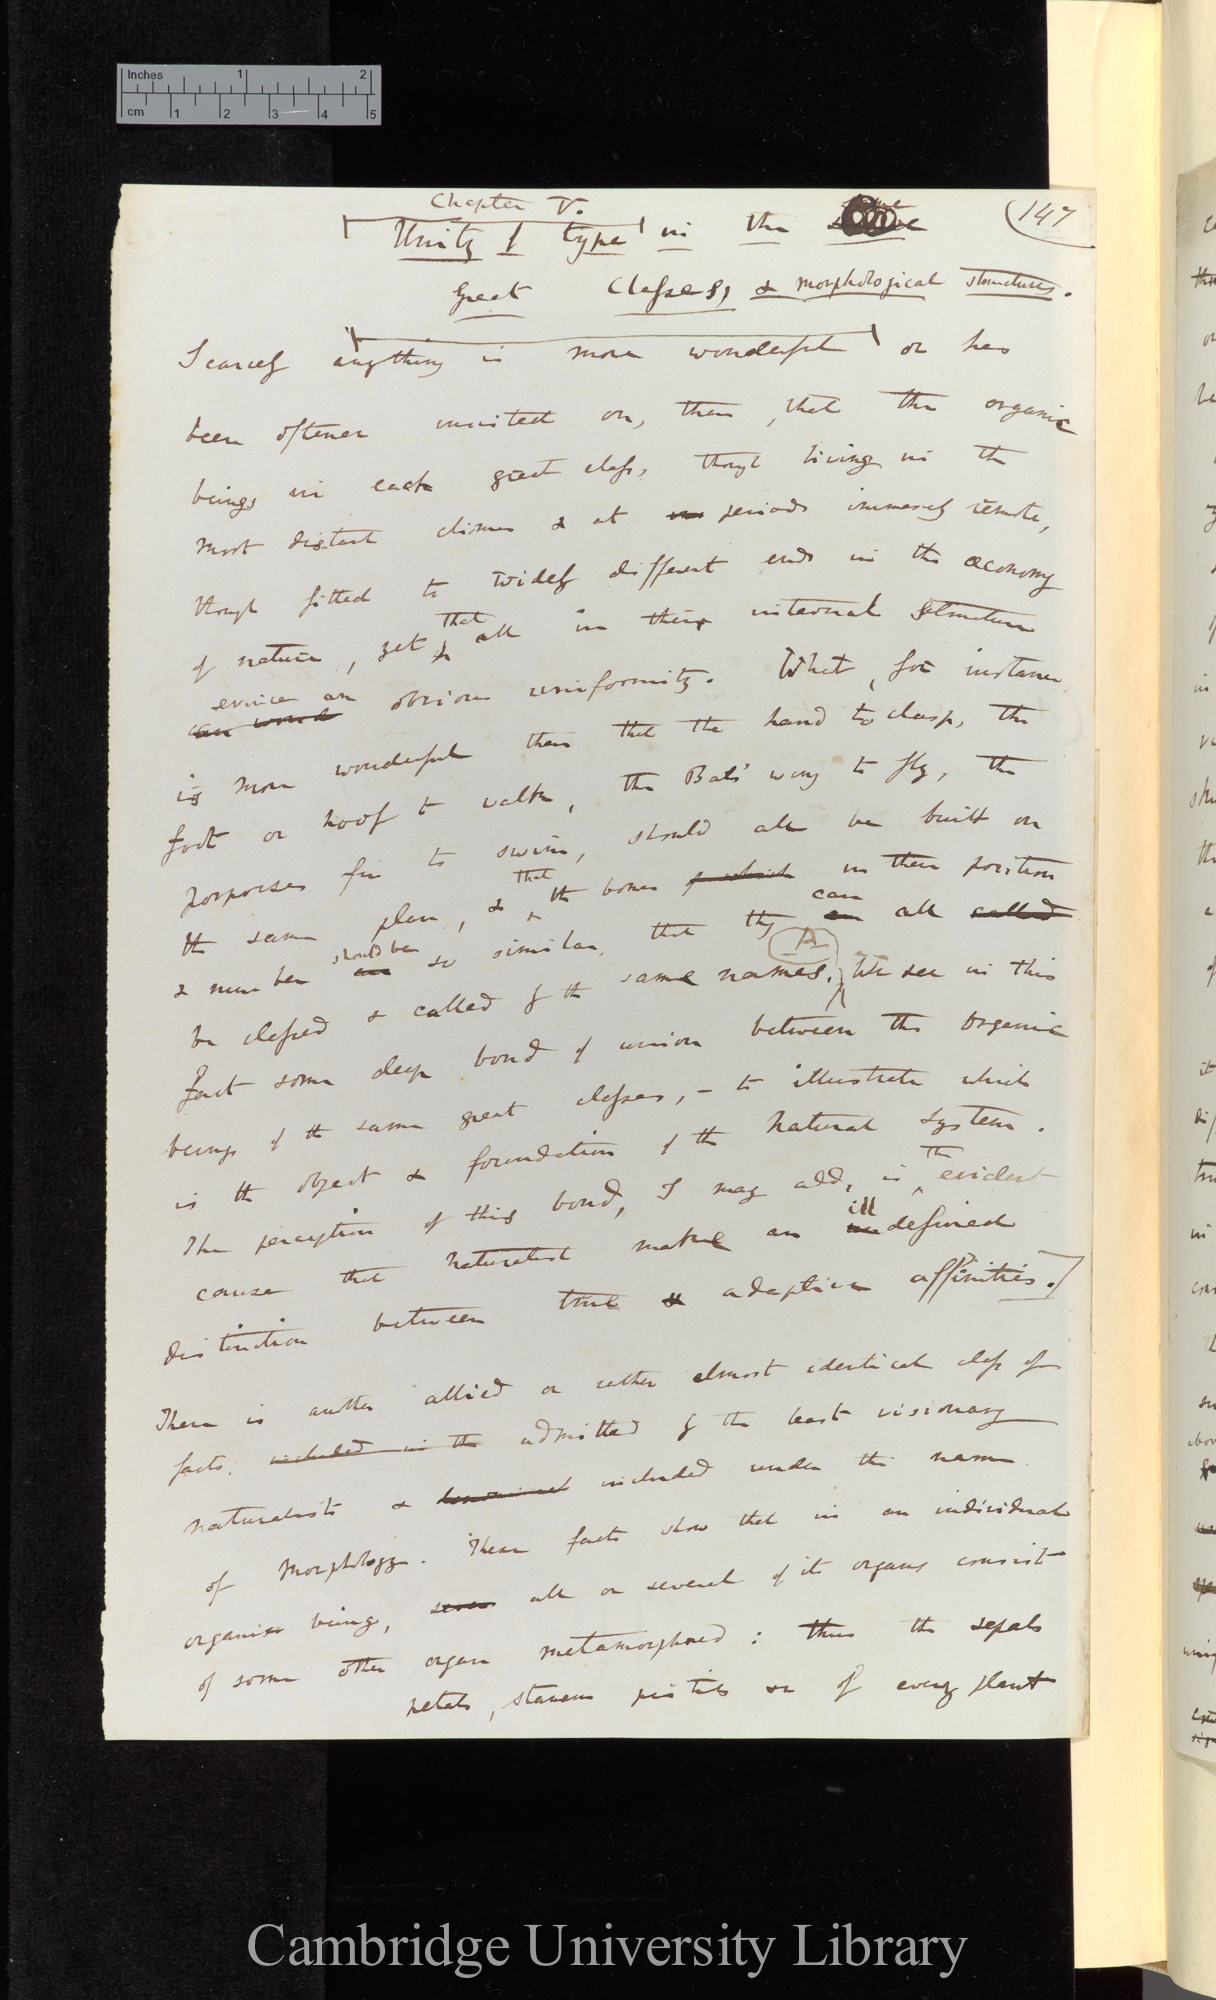 Inches 1 2
cm 1 2 3 4 5
Chapter V.
147
Unity of type in the
Great Classes, & morphological structures.
Scarcely anything is more wonderful or has
been oftener insisted on, than, that the organic
beings in each great class, though living in the
most distant climes & at periods immensely remote,
though fitted to widely different ends in the œconomy
of nature, yet that all in their internal structure
evince an obvious uniformity. What, for instance,
is more wonderful than that the hand to clasp, the
foot or hoof to walk, the Bats' wing to fly, the
porpoises fin to swim, should all be built on
the same plan, & that the bones of which in their position
& number should be so similar, that they can all called
be classed & called by the same names. A We see in this
fact some deep bond of union between the organic
beings of the same great classes, – to illustrate which
is the object & foundation of the natural system.
The perception of this bond, I may add, is the evident
cause that naturalist make an ill defined
distinction between true & adaptive affinities.
There is another allied or rather almost identical class of
facts, included in the admitted by the least visionary
naturalists & included under the name
of Morphology. These facts show that in an individual
organic being, all or several of its organs consist
of some other organ metamorphosed: thus the sepals
petals, stamens pistils &c of every plant
Cambridge University Library